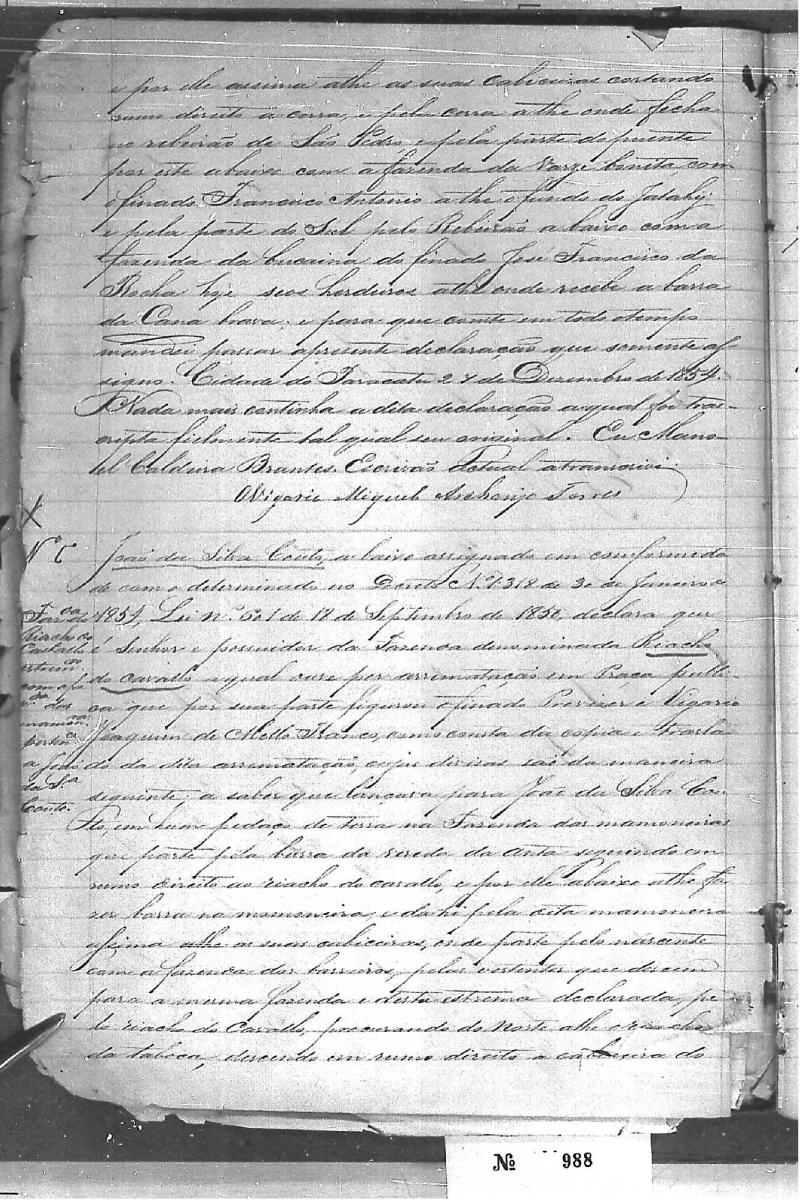 e por elle assima athe as suas cabiceiras cortando
rumo direito a cerra, e pela cerra athe onde fecha
no rebeirão de São Pedro, e pela parte do puente
por este abaixo com a fazenda da Varge bonita com
o finado Francisco Antonio athe o fundo do Jatahy
e pela parte do Sul pelo Rebeirão a baixo com a
fazenda da bucaina do finado José Francisco da
Rocha hoje seos herdeiros athe onde recebe a barra
da Cana brava: e para que conste em todo otempo
mandei passar apresente declaração que somente as
signo. Cidade do Paracatu 27 de Dezembro de 1854.
Nada mais continha a dita declaração aqual foi tras-
cripta fielmente tal qual seu original. Eu Mano-
el Caldeira Brantes Escrivão Actual atranscrivi.
O Vigario Miguel Archanjo Torres
X
Nº 5
João da Silva Couto, a baixo assignado em comformida
de como determinado no Decreto Nº 1.318 de 30 de Janeiro de
1854, Lei nº 601 de 18 de Septembro de 1850, declara que
é Senhor e possuidor da Fazenda denominada Riacho
do cavallo aqual ouve por arrematação em Praça publi-
ca que por sua parte figurou o finado Provisor e Vigario
Joaquim de Mello Franco, como consta da copia e trasla
do da dita arrematação, cujas divisas são da maneira
seguinte, a saber que lancara para João da Silva Cou-
to, em hum pedaço de terra na Fazenda das mamoneiras
que parte pela barra da vereda da anta seguindo em
rumo direito ao riacho do cavallo, e por elle abaixo athe fa
zer barra na mamoneira, e dahi pela dita mamoneira
assima athe as suas cabiceiras, onde parte pelo nascente
com a fazenda dos barreiros, pelas vertentes que descem
para a mesma fazenda e desta estrema declarada, pe
lo riacho do Cavallo, procurando do Norte athe o riacho
da taboca, descendo em rumo direito a cabiceira do
Fazda do
Riacho do
Cavallo
com a fa
da das
mamon
perten
a João
da Sa
Couto.
Nº 988